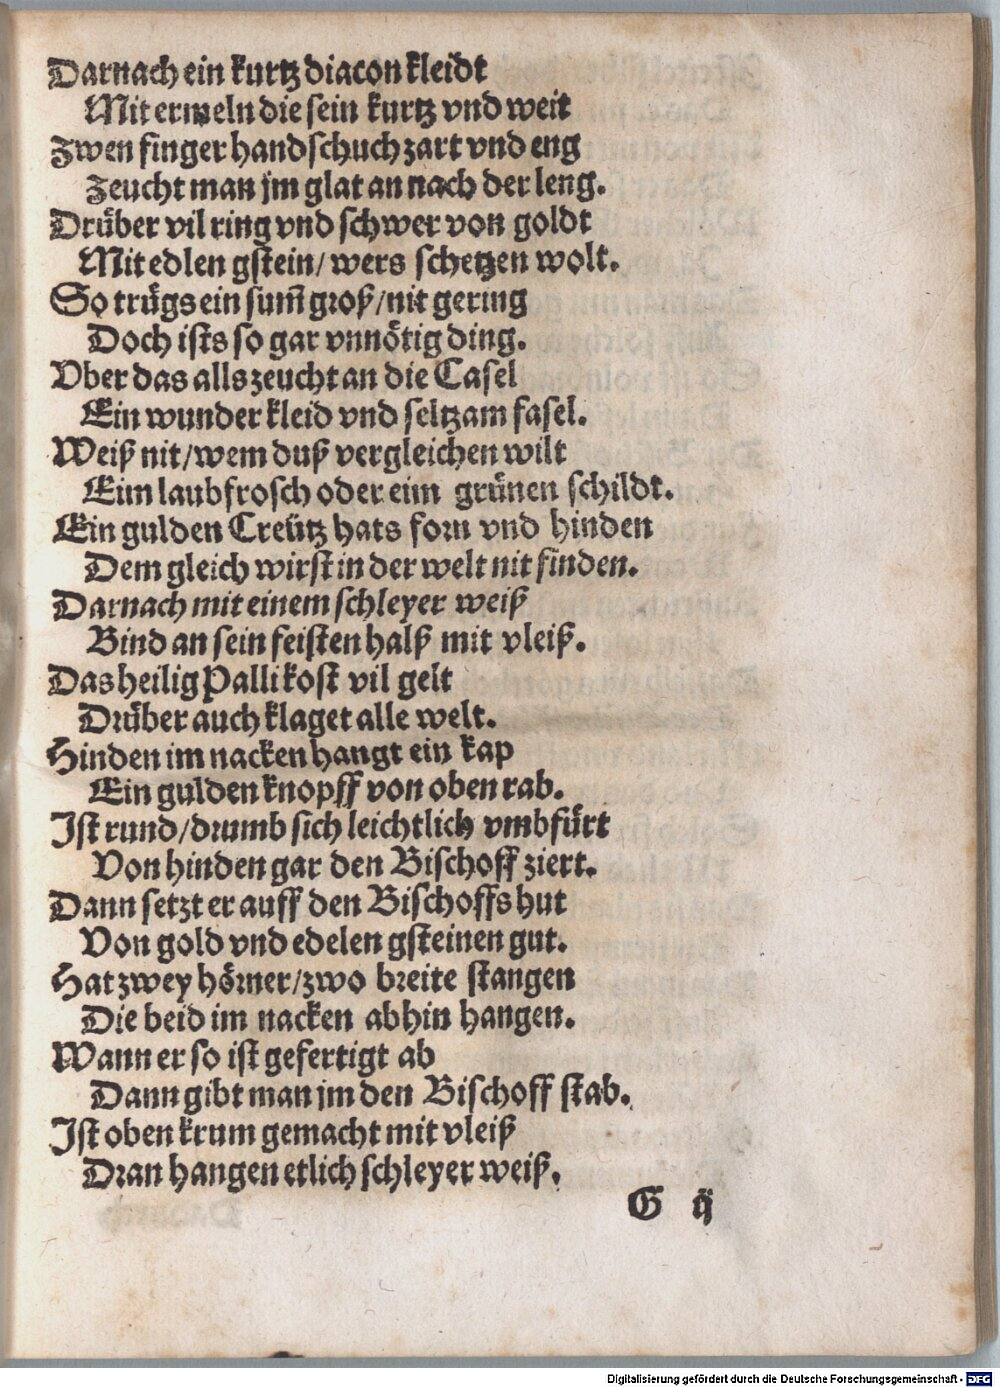 Darnach ein kurtz diacon kleidt
Mit ermeln die sein kurtz vnd weit
Zwen finger handschuch zart vnd eng
Zeucht man jm glat an nach der leng.
Drüber vil ring vnd schwer von goldt
Mit edlen gstein/ wers schetzen wolt.
So trügs ein sum̄ groß/ nit gering
Doch ists so gar vnnötig ding.
Vber das alls zeucht an die Casel
Ein wunder kleid vnd seltzam fasel.
Weiß nit/ wem duß vergleichen wilt
Eim laubfrosch oder eim grünen schildt.
Ein gulden Creütz hats forn vnd hinden
Dem gleich wirst in der welt nit finden.
Darnach mit einem schleyer weiß
Bind an sein feisten halß mit vleiß.
Das heilig Palli kost vil gelt
Drüber auch klaget alle welt.
Hinden im nacken hangt ein kap
Ein gulden knopff von oben rab.
Ist rund/ drumb sich leichtlich vmbfürt
Von hinden gar den Bischoff ziert.
Dann setzt er auff den Bischoffs hut
Von gold vnd edelen gsteinen gut.
Hat zwey hörner/ zwo breite stangen
Die beid im nacken abhin hangen.
Wann er so ist gefertigt ab
Dann gibt man jm den Bischoff stab.
Ist oben krum gemacht mit vleiß
Dran hangen etlich schleyer weiß.
G ij
Digitalisierung gefördert durch die Deutsche Forschungsgemeinschaft - DFG